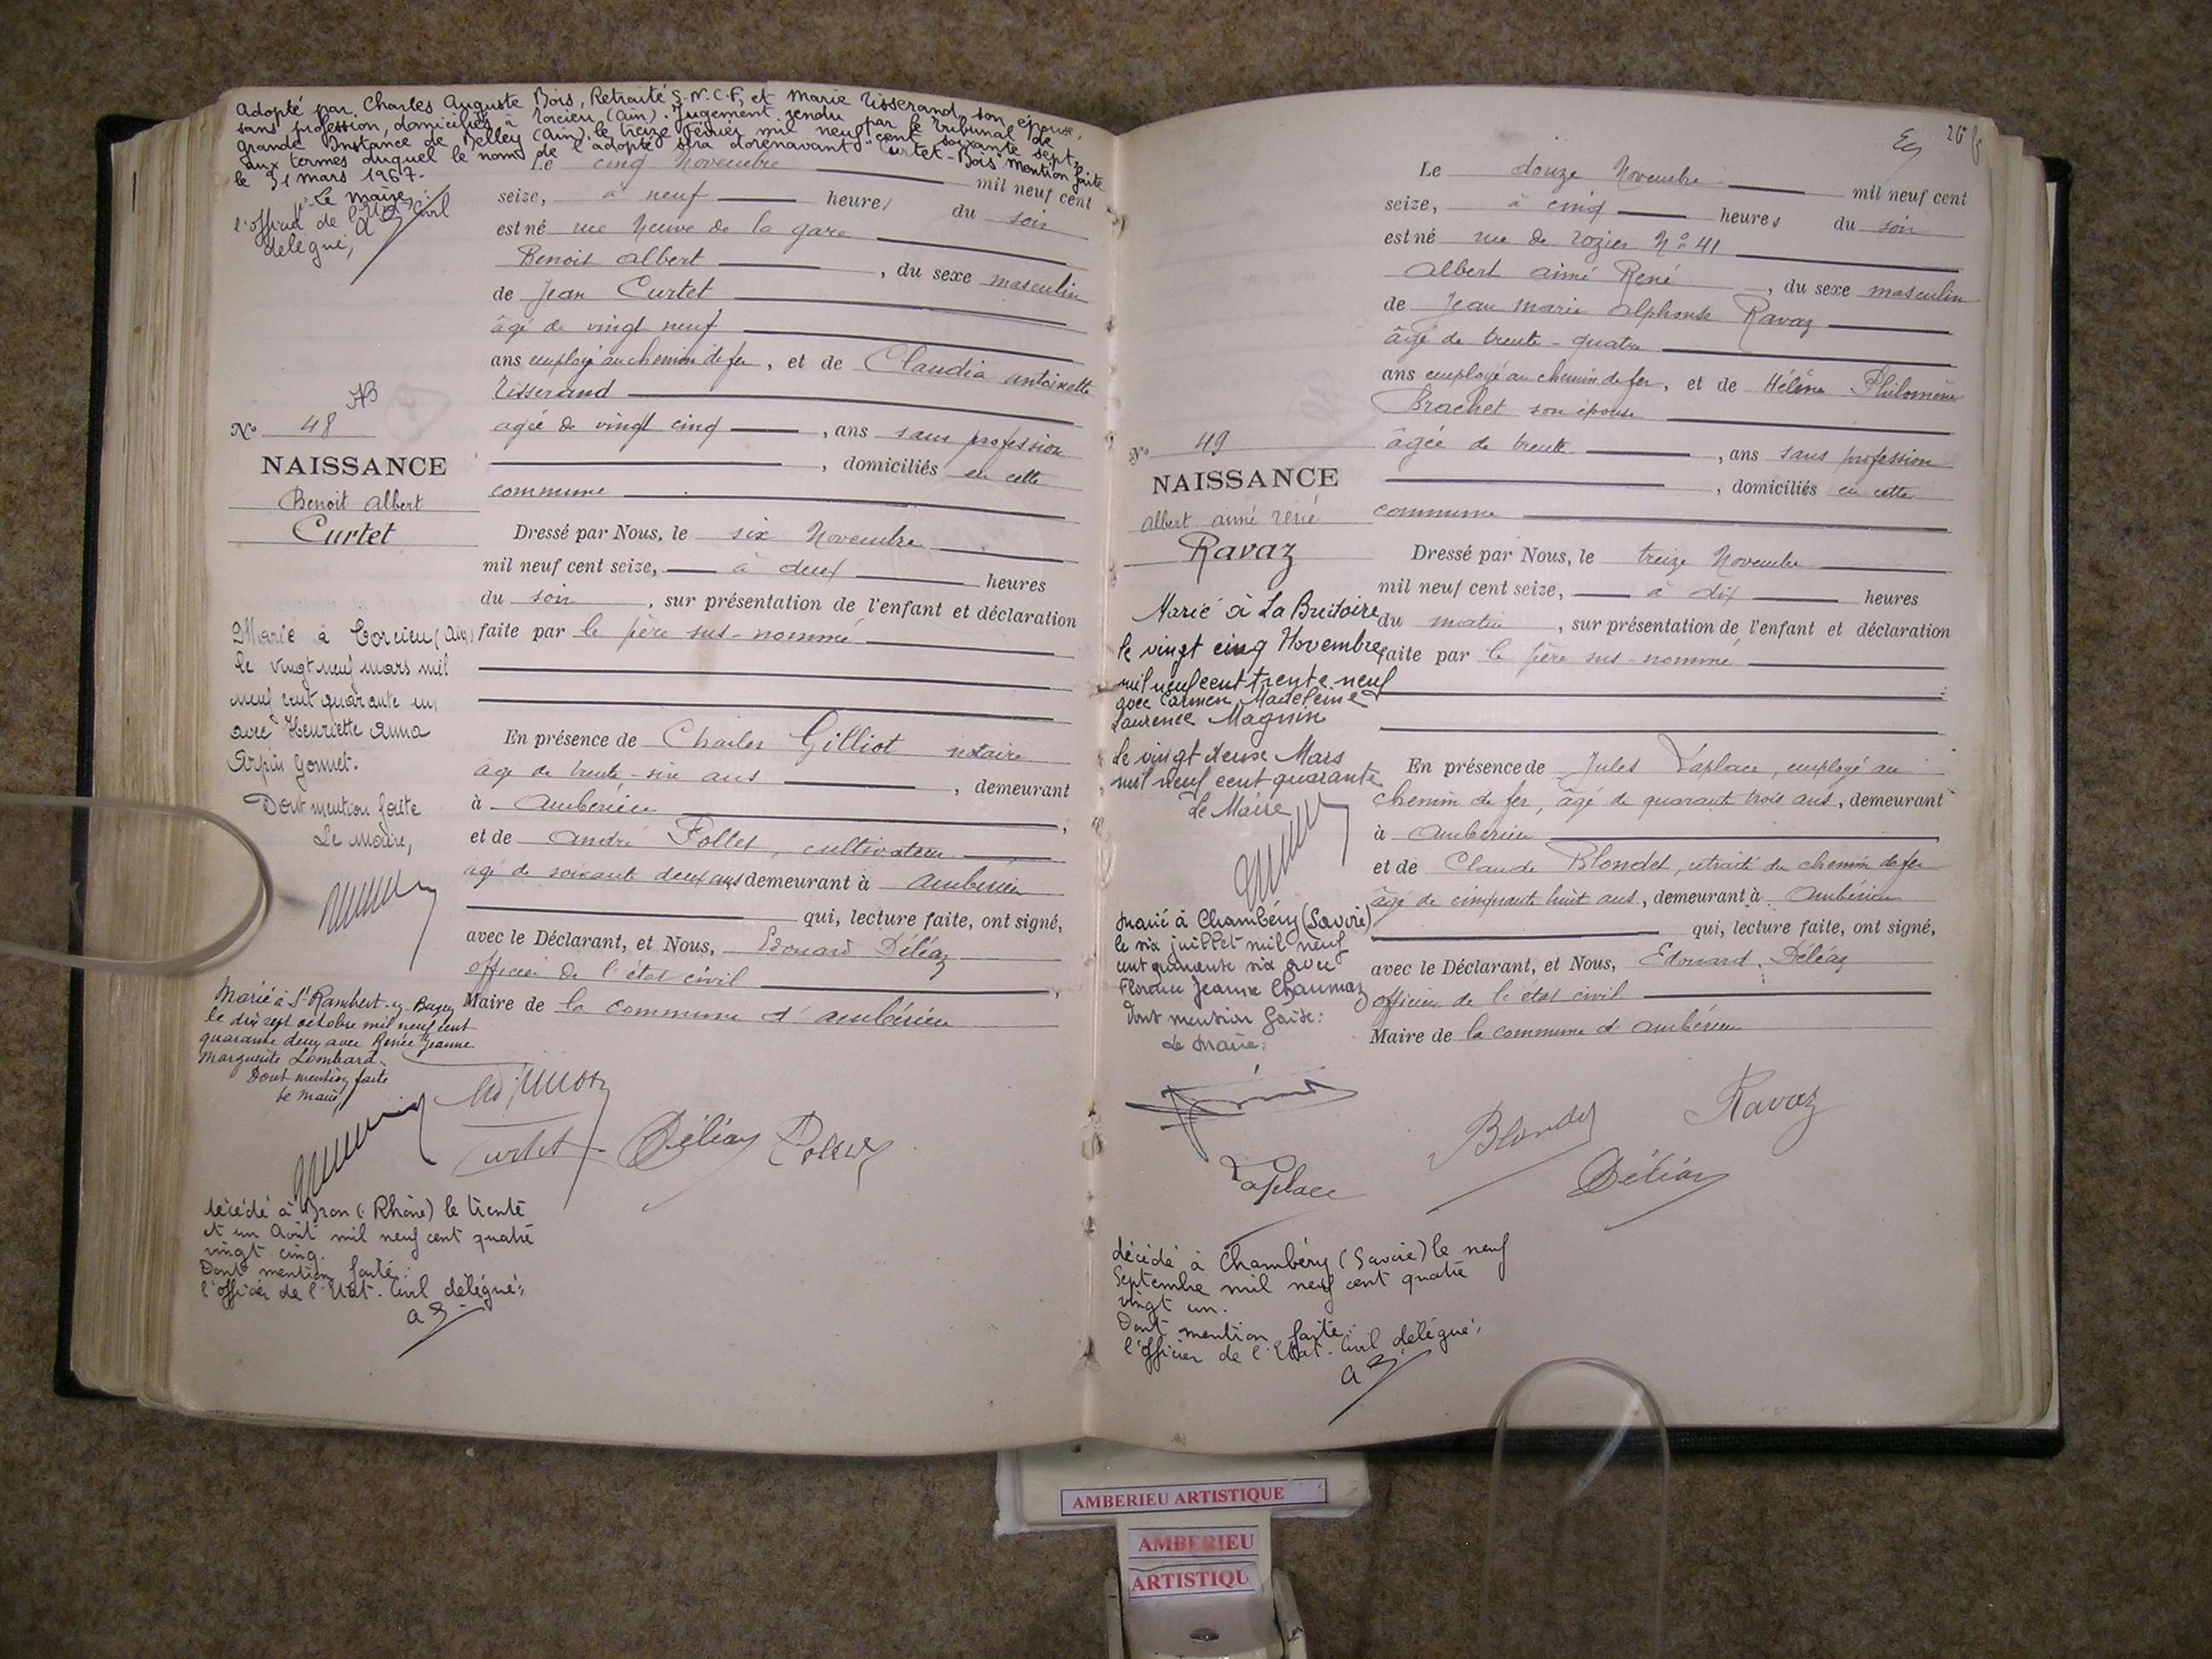 Adopté par Charles Auguste Bois, Retraité S.N.C.F, et Marie Tisserand, son épouse,
sans profession, domiciliés à Torcieu (Ain). Jugement rendu par le Tribunal de
Grande Instance de Belley (Ain). le treize Février mil neuf cent soixante sept,
aux termes duquel le nom de l'adopté sera dorénavant "Curtet-Bois" Mention faite
le 31 mars 1967.
Le maire,
l'officier de l'Etat Civil
délégué,
N° 48
NAISSANCE
Benoit Albert
Curtet
Marié à Torcieu (Ain)
le vingt neuf mars mil
neuf cent quarante un
avec Henriette Anna
Arpin Gonnet.
Dont mention faite
Le Maire,
Marié à St Rambert-en-Bugey
le dix sept octobre mil neuf cent
quarante deux avec Renée Jeanne
Marguerite Lombard.
Dont mention faite
Le Maire,
Le cinq Novembre mil neuf cent
seize, à neuf heures du soir
est né rue Neuve de la gare
Benoit Albert, du sexe masculin
de Jean Curtet
âgé de vingt neuf
ans employé au chemin de fer, et de Claudia antoinette
Tisserand
agée de vingt cinq, ans sans profession
, domiciliés en cette
commune
Dressé par Nous, le six Novembre
mil neuf cent seize, à deux heures
du soir, sur présentation de l'enfant et déclaration
faite par le père sus-nommé
En présence de Charles Gilliot notaire
âgé de trente-six ans, demeurant
à Ambérieu,
et de André Follet, cultivateur
âgé de soixante deux ans demeurant à Ambérieu
qui, lecture faite, ont signé,
avec le Déclarant, et Nous, Edouard Déléaz
officier de l'état civil,
Maire de la commune d'Ambérieu
Curtet Déléaz
décédé à Bron (Rhône) le trente
et un Août mil neuf cent quatre
vingt cinq.
Dont mention faite:
l'officier de l'Etat-Civil délégué,
26
N° 49
NAISSANCE
Albert aimé René
Ravaz
Marié à La Bridoire
le vingt cinq Novembre
mil neuf cent trente neuf
avec Carmen Madeleine
Laurence Magnin
Le vingt deux Mars
mil neuf cent quarante
Le Maire
Marié à Chambéry (Savoie)
le six juillet mil neuf
cent quarante six avec
Florence Jeanne Chaumaz
Dont mention faite:
Le Maire:
Le douze Novembre mil neuf cent
seize, à cinq heures du soir
est né rue de Rozier N° 41
Albert aimé René, du sexe masculin
de Jean Marie Alphonse Ravaz
âgé de trente-quatre
ans employé au chemin de fer, et de Hélène Philomène
Brachet son épouse
âgée de trente, ans sans profession
, domiciliés en cette
commune
Dressé par Nous, le treize Novembre
mil neuf cent seize, à dix heures
du matin, sur présentation de l'enfant et déclaration
faite par le père sus-nommé
En présence de Jules Laplace, employé au
chemin de fer, âgé de quarante trois ans, demeurant
à Ambérieu
et de Claude Blondet, retraité du chemin de fer
âgé de cinquante huit ans, demeurant à Ambérieu
qui, lecture faite, ont signé,
avec le Déclarant, et Nous, Edouard Déléaz
officier de l'état civil
Maire de la commune d'Ambérieu
Blondet Ravaz
Laplace Déléaz
décédé à Chambéry (Savoie) le neuf
Septembre mil neuf cent quatre
vingt un.
Dont mention faite:
l'officier de l'Etat-Civil délégué,
AMBERIEU ARTISTIQUE
AMBERIEU
ARTISTIQU